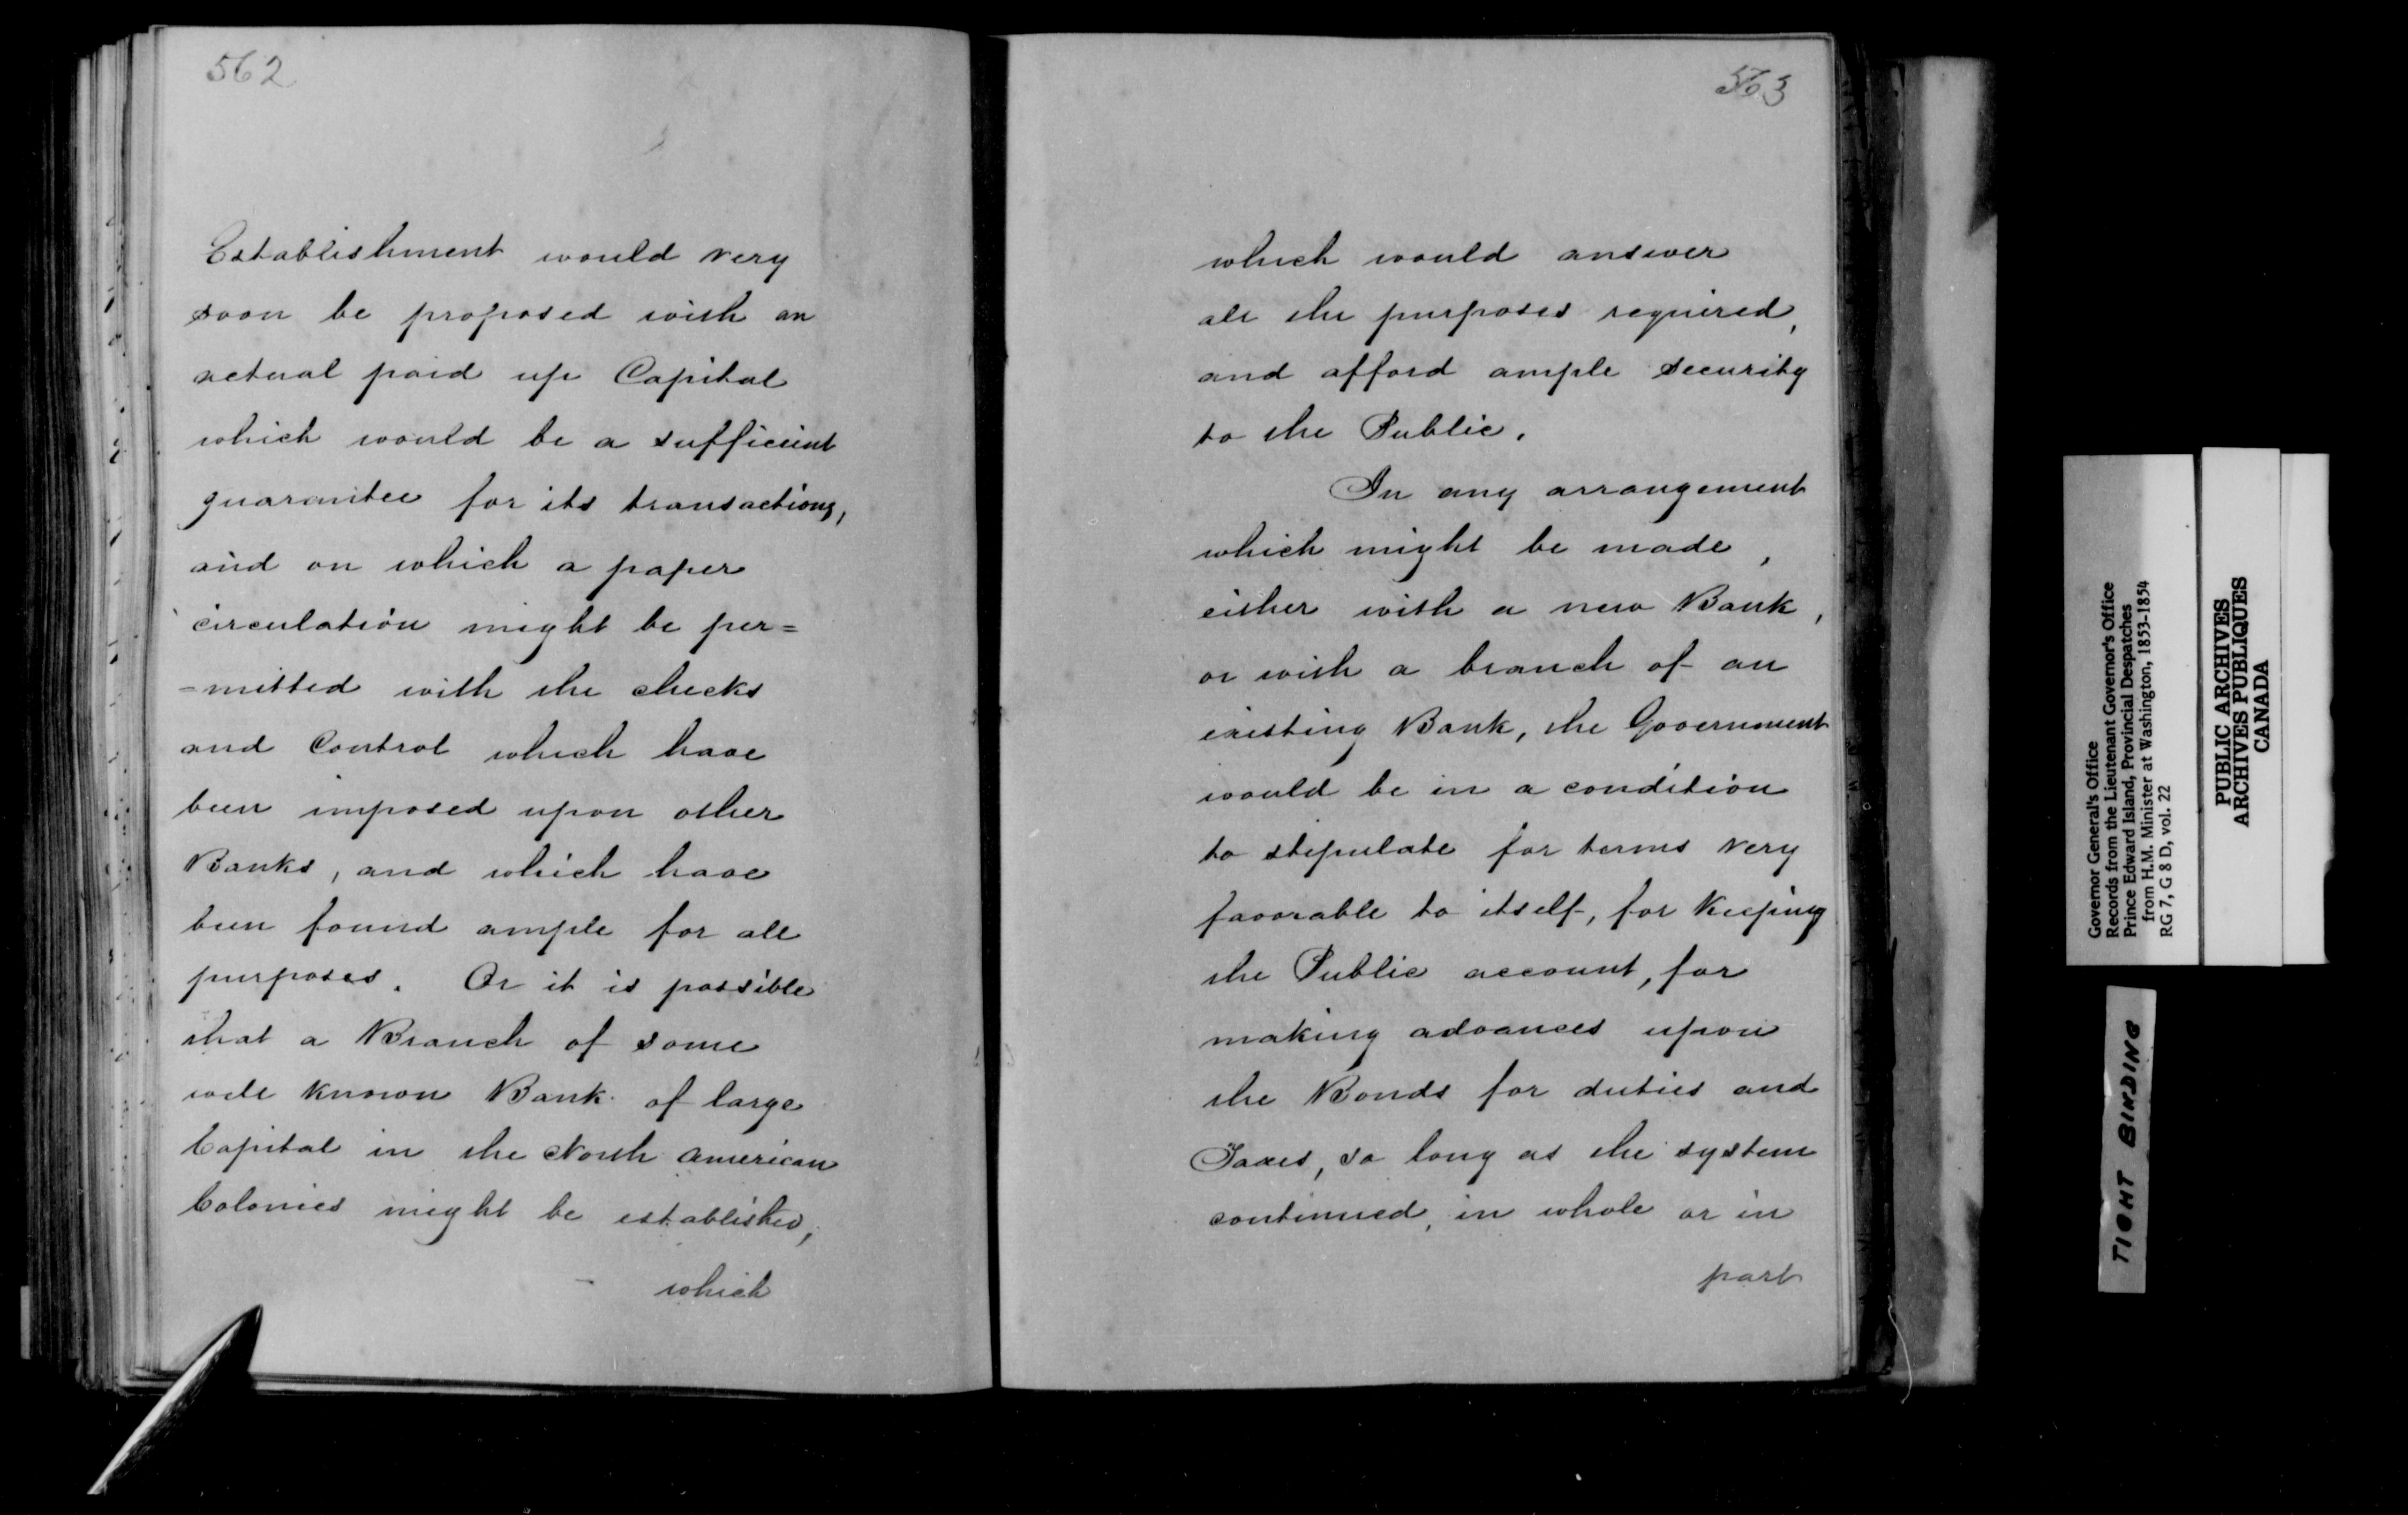 562
Establishment would very
soon be proposed with an
actual paid up Capital
which would be a sufficient
guarantee for its transactions,
and on which a paper
circulation might be per=
=mitted with the checks
and Control which have
been imposed upon other
Banks, and which have
been found ample for all
purposes. Or it is possible
that a Branch of some
well known Bank of large
Capital in the North American
Colonies might be established,
which
563
which would answer
all the purposes required,
and afford ample security
to the Public.
In any arrangement
which might be made,
either with a new Bank,
or with a branch of an
existing Bank, the Government
would be in a condition
to stipulate for terms very
favorable to itself, for Keeping
the Public account, for
making advances upon
the Bonds for duties and
Taxes, so long as the system
continued, in whole or in
part
Governor General's Office
Records from the Lieutenant Governor's Office
Prince Edward Island, Provincial Despatches
from H.M. Minister at Washington, 1853-1854
RG 7, G 8 D, vol. 22
PUBLIC ARCHIVES
ARCHIVES PUBLIQUES
CANADA
TIGHT BINDING